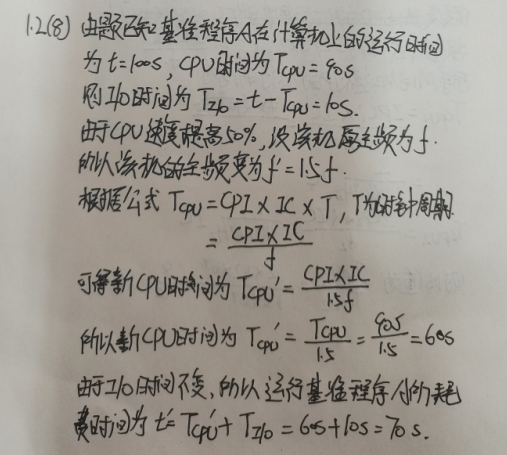 1.2(8) 由题已知基准程序A在计算机上的运行时间
为t=100s, CPU时间为Tcpu=90s
则I/O时间为T_I/O=t-Tcpu=10s.
由于CPU速度提高50%, 设该机原主频为f.
所以该机的主频变为f'=1.5f.
根据公式 Tcpu=CPI×IC×T, T为时钟周期
= CPI×IC / f
可得新CPU时间为 Tcpu' = CPI×IC / 1.5f
所以新CPU时间为 Tcpu' = Tcpu / 1.5 = 90s / 1.5 = 60s
由于I/O时间不变, 所以运行基准程序A所耗
费时间为 t'=Tcpu'+T_I/O=60s+10s=70s.